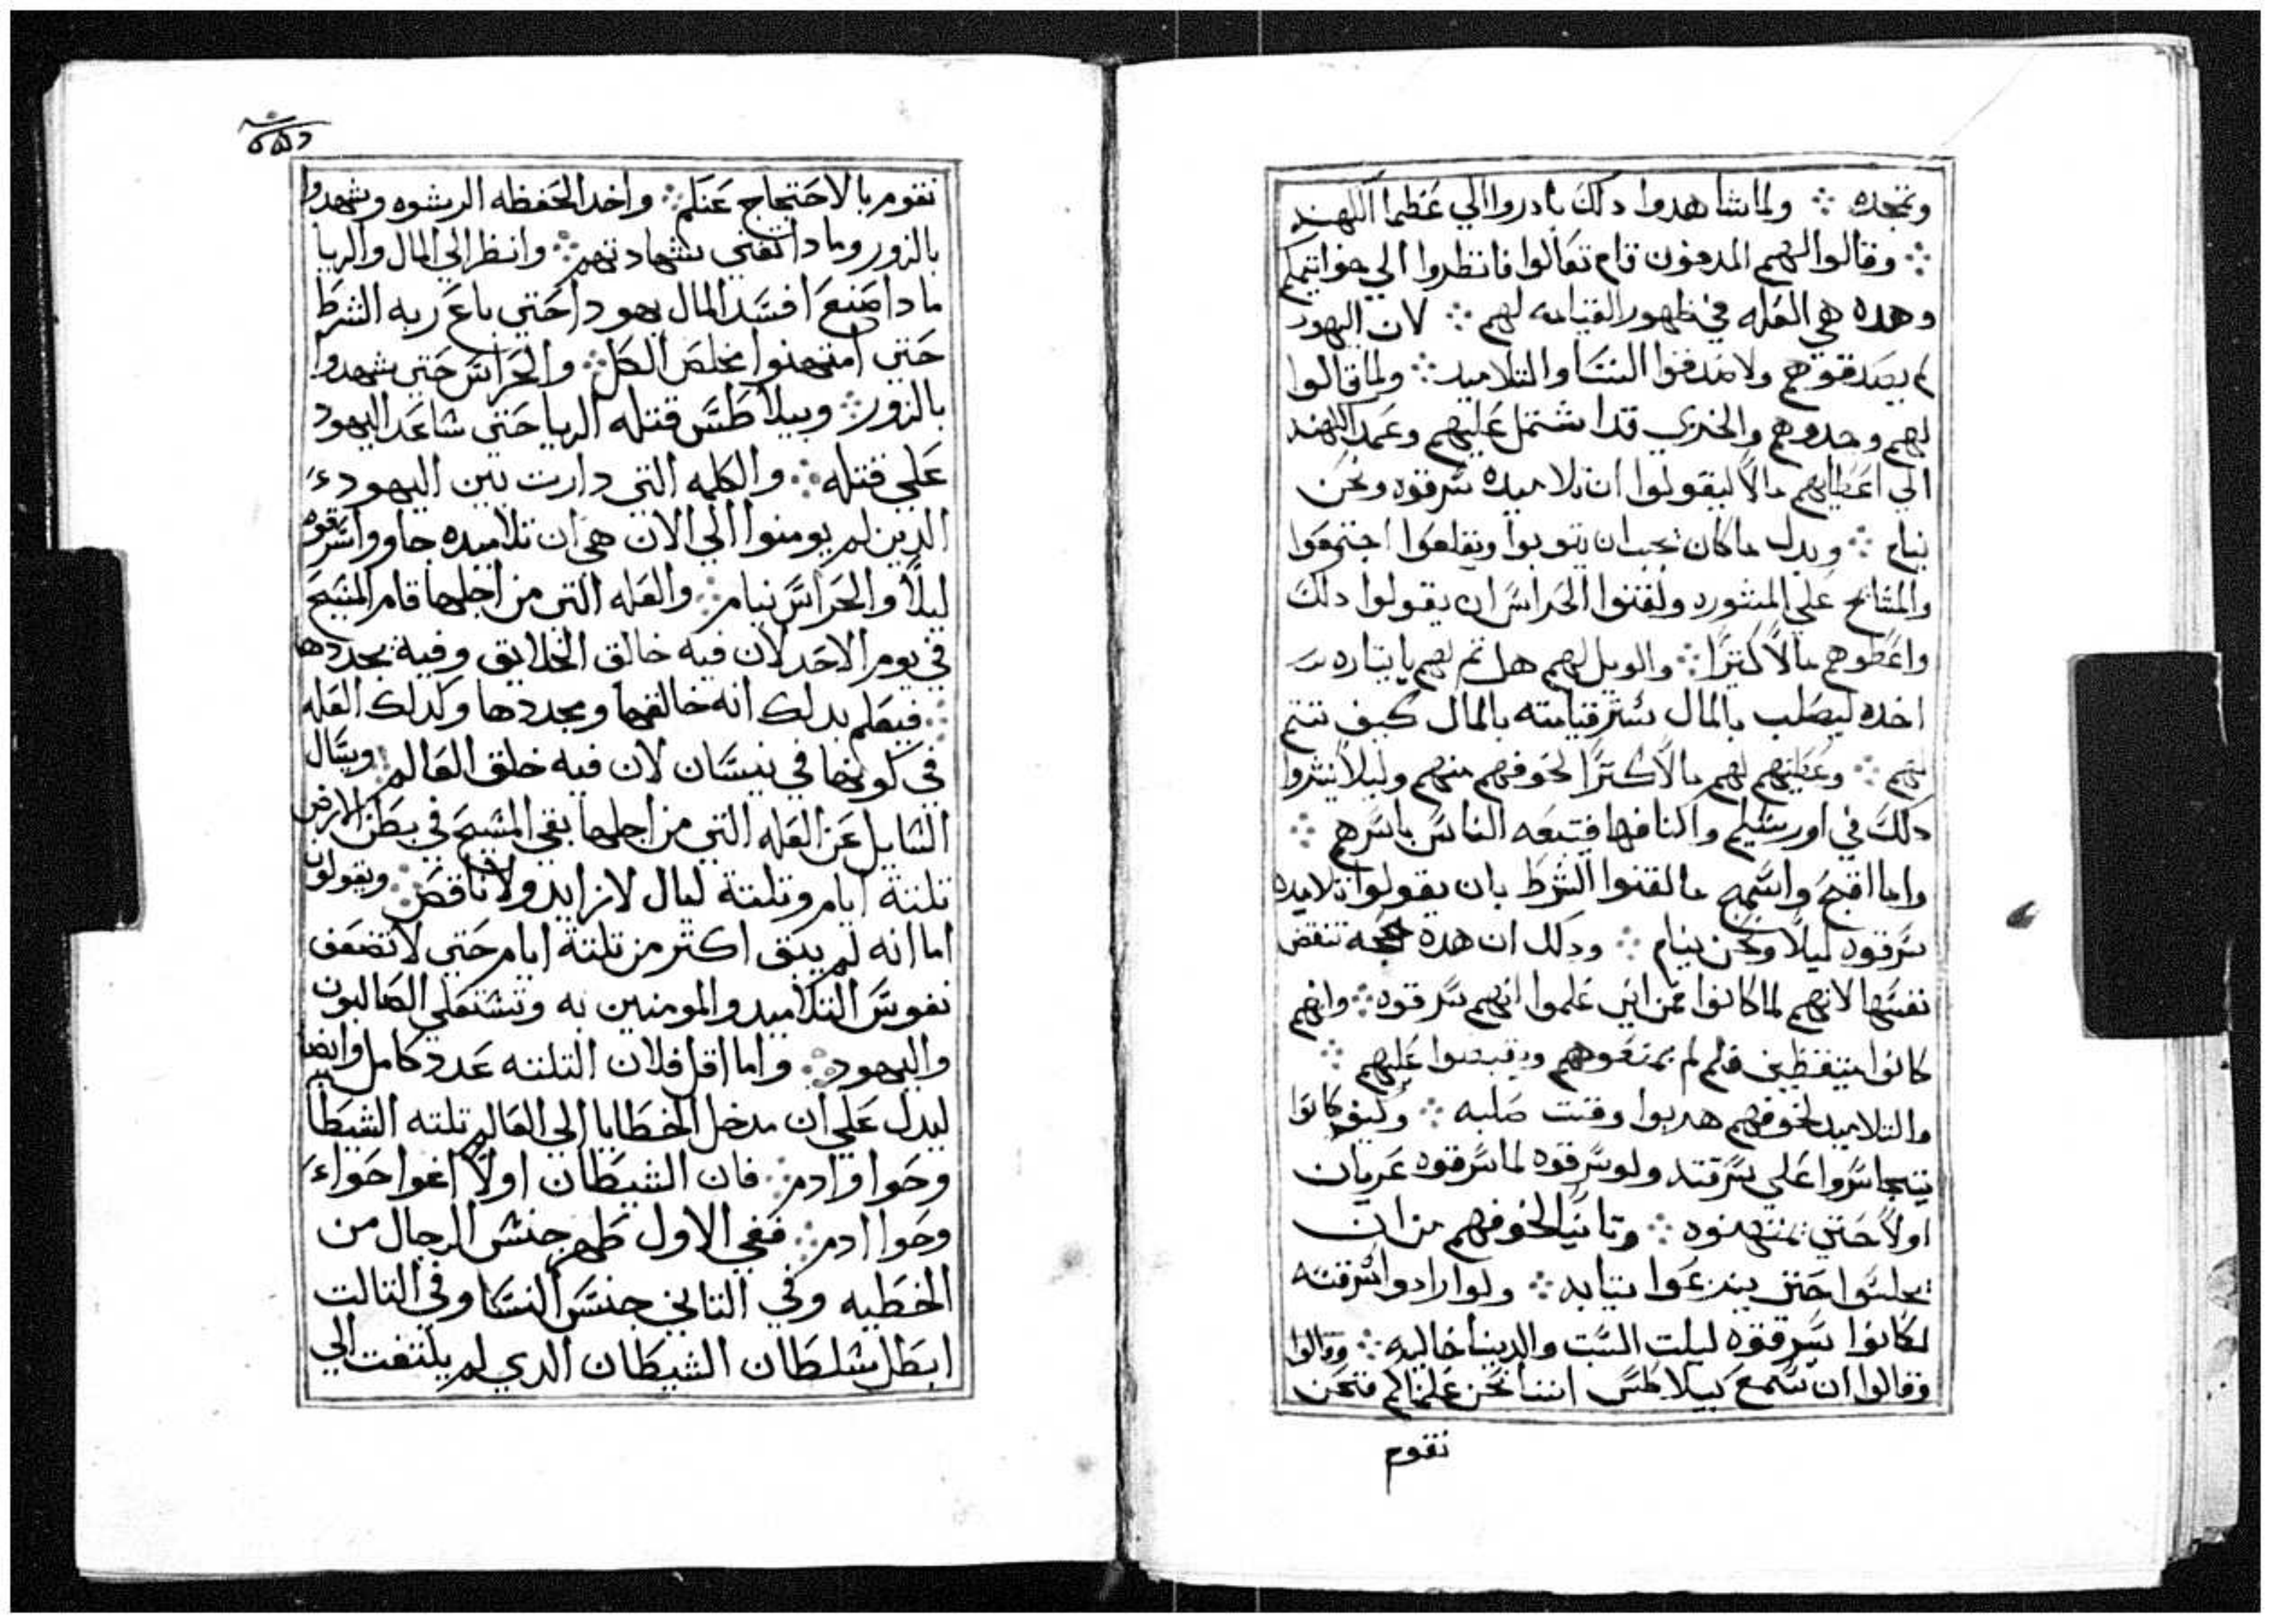 وتمجده ∴ ولما شاهدوا دلك بادروا الي عظما الكهنه
∴ وقالوا لهم المدفون قام تعالوا فانظروا الي خواتيمكم
وهده هي العله في ظهور القيامه لهم ∴ لان اليهود
لم يصدقوهم ولا صدقوا النسا والتلاميد ∴ ولما قالوا
لهم وجدوهم والخزي قد اشتمل عليهم وعمد الكهنه
الي اعطايهم مالا ليقولوا ان تلاميده سرقوه ونحن
نيام ∴ وبدل ما كان يجب ان يتوبوا ويقلعوا اجتمعوا
والمشايخ علي المشوره ولقنوا الحراس ان يقولوا دلك
واعطوهم مالا كتيرا ∴ والويل لهم هل تم لهم
اخده ليصلب بالمال بستر قيامته بالمال كيف تتم
لهم ∴ وعطيتهم لهم مالا كتيرا لخوفهم منهم وليلا ينشروا
دلك في اورشليم واكنافها فتبعه الناس باسرهم ∴
واما اقبح واسمج ما لقنوا الشرط بان يقولوا تلاميده
سرقوه ليلا ونحن نيام ∴ ودلك ان هده حجه تنقض
نفسها لانهم لما كانوا فمن اين علموا انهم سرقوه ∴ وانهم
كانوا متيقظين فلم لم يمنعوهم ويقبضوا عليهم ∴
والتلاميد لخوفهم هربوا وقت صلبه ∴ وكيف كانوا
يتجاسروا علي سرقته ولو سرقوه لما سرقوه عريان
اولا حتي يمتهنوه ∴ وتانيا لخوفهم من ان
يجلسوا حتي ينزعوا تيابه ∴ ولو ارادوا سرقته
لكانوا سرقوه ليلت السبت والدينا خاليه ∴ وقالوا
وقالوا ان سمع بيلاطس اننا نحن علمناكم فنحن
نقوم
نقوم بالاحتجاج عنكم ∴ واخد الحفظه الرشوه وشهدوا
بالزور وما دا تغني شهادتهم ∴ وانظر الي المال والريا
ما دا صنع افسد المال يهودا حتي باع ربه الشرط
حتي امتهنوا مخلص الكل ∴ والحراس حتي شهدوا
بالزور ∴ وبيلاطس قتله الريا حتي شاعد اليهود
علي قتله ∴ والكلمه التي دارت بين اليهود
الدين لم يومنوا الي الان هي ان تلاميده جاوو اسرقوه
ليلا والحراس نيام ∴ والعله التي من اجلها قام المسيح
في يوم الاحد لان فيه خالق الخلايق وفيه يجددها
∴ فيعلم بدلك انه خالقها ومجددها وكدلك العله
في كونها في نيسان لان فيه خلق العالم ∴ ويسال
السايل عن العله التي من اجلها بقي المسيح في بطن الارض
تلتة ايام وتلتة ليال لا زايد ولا ناقص ∴ ويقولون
اما انه لم يبق اكتر من تلتة ايام حتي لا تضعف
نفوس التلاميد والمومنين به وتشتعلي الصالبون
واليهود ∴ واما اقل فلان التلته عدد كامل وايضا
ليدل علي ان مدخل الخطايا الي العالم تلته الشيطان
وحوا وادم ∴ فان الشيطان اولا اغوا حواء
وحوا ادم ∴ ففي الاول طهر جنس الرجال من
الخطيه وفي التاني جنس النسا وفي التالت
ابطل سلطان الشيطان الدي لم يلتفت الي